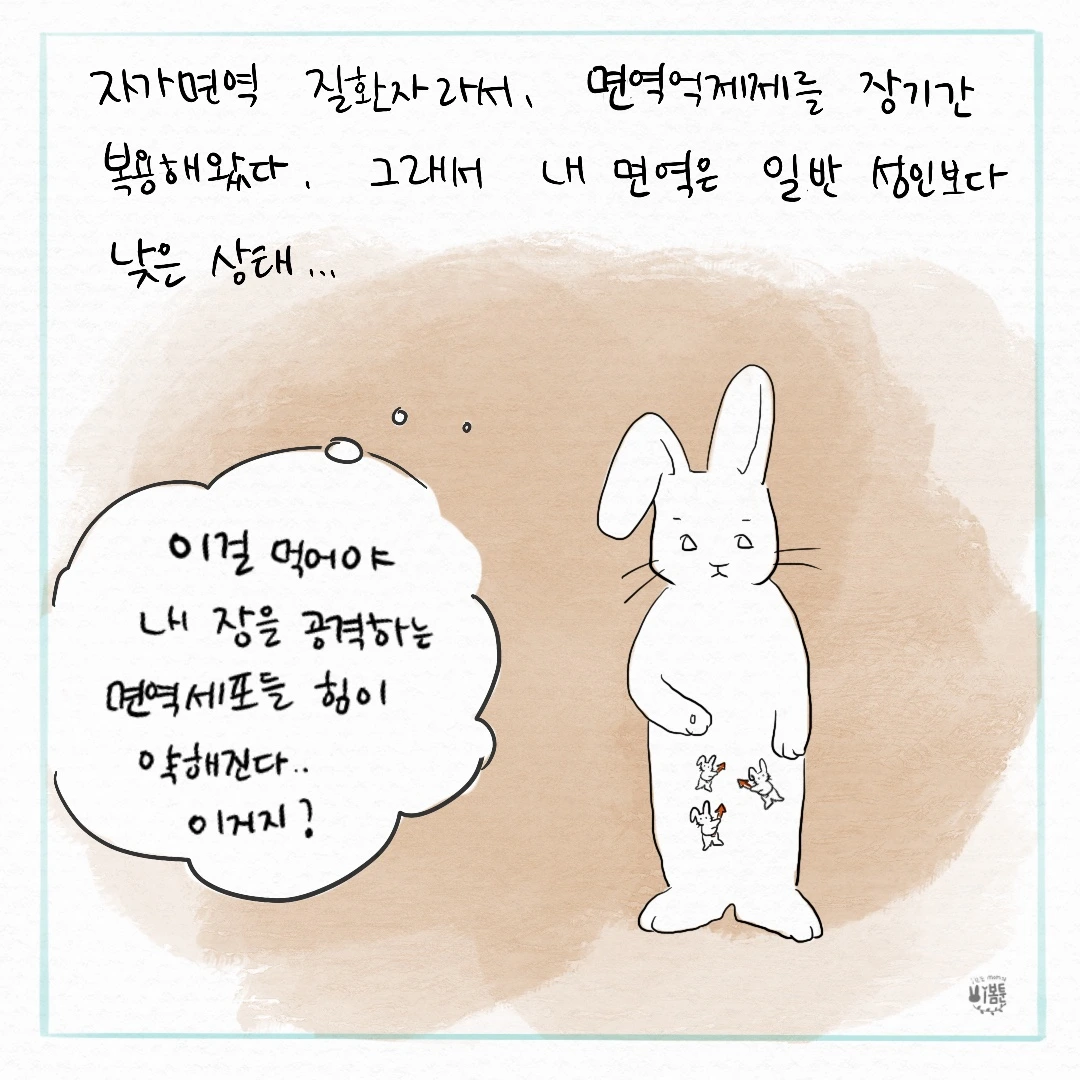 자가면역 질환자라서, 면역억제제를 장기간
복용해왔다. 그래서 내 면역은 일반 성인보다
낮은 상태...
이걸 먹어야
내 장을 공격하는
면역세포들 힘이
약해진다..
이거지?
봄툰